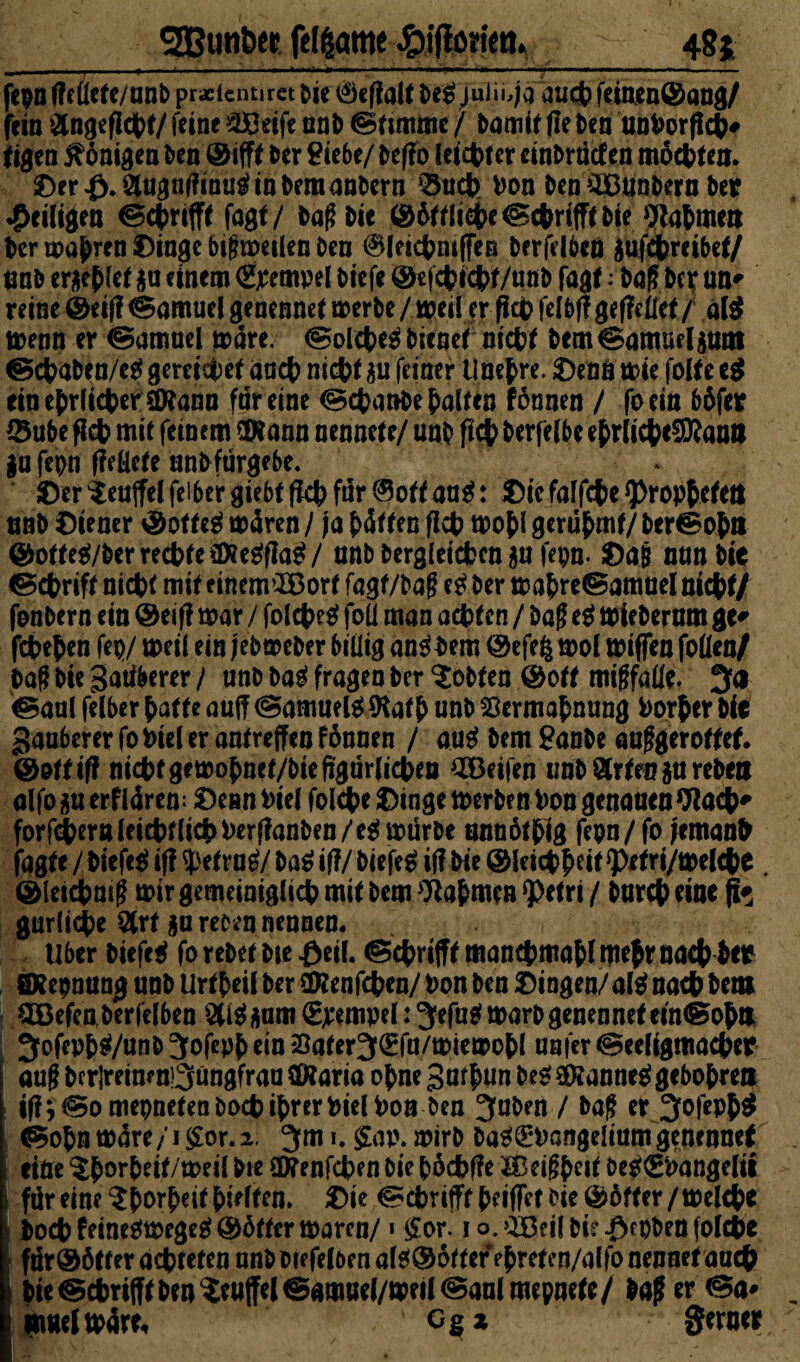 Wunder selßame Historien. 481
seyn stellete/und præsentiret die Gestalt des Julii,ja auch seinen Gang/
sein Angesicht/ seine Weise und Stimme / damit sie den unvorsich⸗
tigen Königen den Gifft der Liebe/ desto leichter eindrücken möchten.
Der H. Augustinus in dem andern Buch von den Wundern der
Heiligen Schrifft sagt/ daß die Göttliche Schrifft die Nahmen
der wahren Dinge bißweilen den Gleichnissen derselben zuschreibet/
und erzehlet zu einem Exempel diese Geschicht/und sagt: daß der un⸗
reine Geist Samuel genennet werde / weil er sich selbst gestellet / als
wenn er Samuel wäre. Solches dienet nicht dem Samuel zum
Schaden/es gereichet auch nicht zu seiner Unehre. Denn wie solte es
ein ehrlicher Mann für eine Schande halten können / so ein böser
Bube sich mit seinem Mann nennete/ und sich derselbe ehrliche Mann
zu seyn stellete und fürgebe.
Der Teuffel selber giebt sich für Gott aus: Die falsche Propheten
und Diener Gottes wären / ja hätten sich wohl gerühmt/ der Sohn
Gottes/der rechte Messias / und dergleichen zu seyn. Daß nun die
Schrift nicht mit einem Wort sagt/daß es der wahre Samuel nicht/
sondern ein Geist war / solches soll man achten / daß es wiederum ge⸗
schehen sey/ weil ein jedweder billig aus dem Gesetz wol wissen sollen/
daß die Zauberer / und das fragen der Todten Gott mißfalle. Ja
Saul selber hatte auff Samuels Rath und Vermahnung vorher die
Zauberer so viel er antreffen können / aus dem Lande außgerottet.
Gott ist nicht gewohnet/die figürlichen Weisen und Arten zu reden
also zu erklären: Denn viel solche Dinge werden von genauen Nach⸗
forschern leichtlich verstanden / es würde unnöthig seyn / so jemand
sagte / dieses ist Petrus/ das ist/ dieses ist die Gleichheit Petri/welche
Gleichniß wir gemeiniglich mit dem Nahmen Petri / durch eine fi⸗
gurliche Art zu reden nennen.
Uber dieses so redet die Heil. Schrifft manchmahl mehr nach der
Meynung und Urtheil der Menschen/ von den Dingen/ als nach dem
Wesen derselben Als zum Exempel: Jesus ward genennet ein Sohn
Josephs/und Joseph ein Vater JEsu/wiewohl unser Seeligmacher
auß der reinen Jungfrau Maria ohne Zuthun des Mannes gebohren
ist; So meyneten doch ihrer viel von den Juden / daß er Josephs
Sohn wäre / 1 Cor. 2. Im 1. Cap. wird das Evangelium genennet
eine Thorheit/weil die Menschen die höchste Weißheit des Evangelii
für eine Thorheit hielten. Die Schrifft heisset die Götter / welche
doch keinesweges Götter waren/ 1 Cor. 10. Weil die Heyden solche
für Götter achteten und dieselben als Götter ehreten/also nennet auch
die Schrifft den Teuffel Samuel/weil Saul meynete / daß er Sa⸗
muel wäre. Gg 2 Ferner